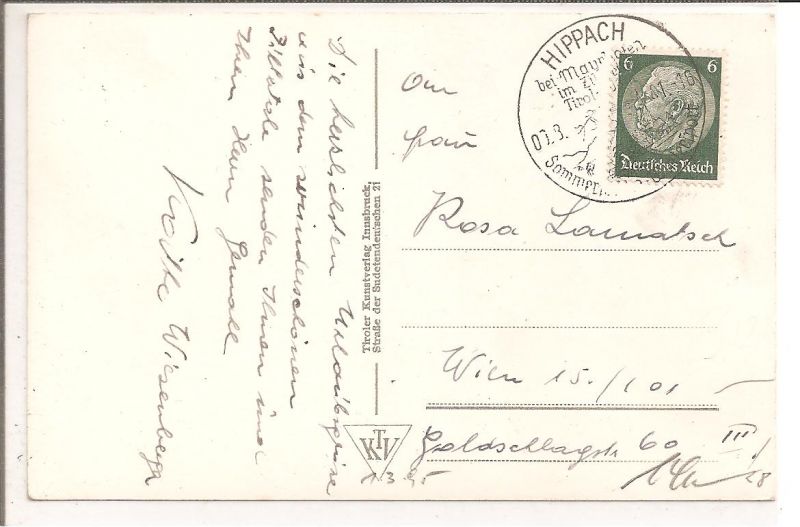 Die herzlichsten Urlaubsgrüsse
aus dem wunderschönen
Zillertale senden Ihnen und
Ihrem Herrn Gemahl
Käthe Wiesenberger
Tiroler Kunstverlag Innsbruck,
Straße der Sudetendeutschen 21
KTV
HIPPACH
bei Mayrhofen
im Zi
Tirol
Sommer
6 6
Deutsches Reich
An
Frau
Rosa Lamatsch
Wien 15./101
Goldschlagstr 60 III